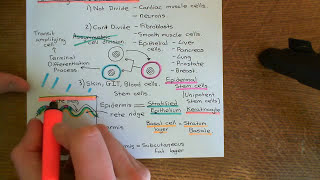 1) Not Divide - Cardiac muscle cells.
- neurons
2) Can't Divide - Fibroblasts
- Smooth muscle cells
Transit
amplifying
cell
Assymmetric
cell division
- Epithelial cells
- Liver
- Pancreas
- Lung
- Prostate
- Breast.
Terminal
Differentiation
Process
3) Skin, GIT, Blood cells.
Stem cells.
Epidermal
Stem cells
(Unipotent
Stem cells)
Keratinocyte
Epidermis = Stratified
Epithelium
rete ridge
Basal cell = Stratum
layer Basale
= Subcutaneous
fat layer